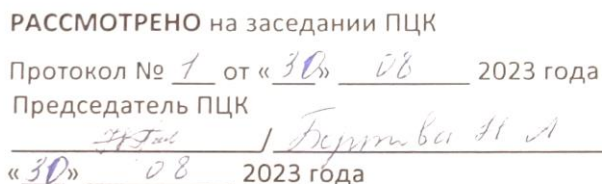 РАССМОТРЕНО на заседании ПЦК
Протокол № 1 от «30» 08 2023 года
Председатель ПЦК
/ Н А
«30» 08 2023 года